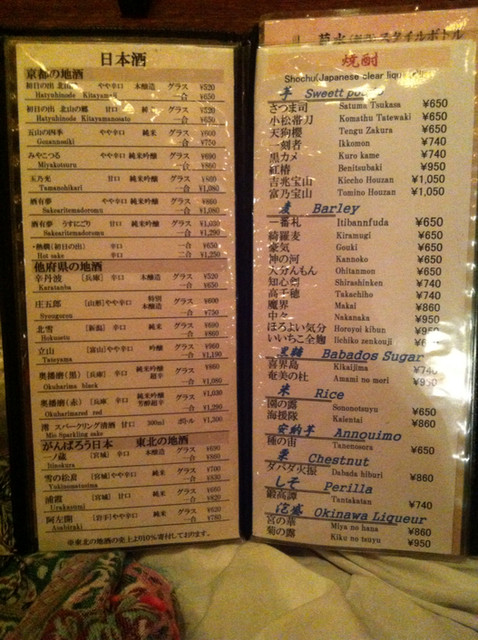 日本酒
京都の地酒
初日の出 やや辛口 本醸造 グラス ¥520
Hatyuhinode Kitayama 一合 ¥650
初日の出 北山の郷 甘口 グラス ¥520
Hatyuhinode Kitayamanosato 一合 ¥650
五山の四季 やや辛口 純米 グラス ¥600
Gozannosiki 一合 ¥750
みやこつる やや辛口 純米吟醸 グラス
Miyakotsuru 一合
玉乃光 甘口 純米吟醸 グラス
Tamanohikari 一合 ¥1,080
酒有夢 やや辛口 純米吟醸 グラス
Sakearitemadoromu 一合 ¥1,080
酒有夢 うすにごり 甘口 純米吟醸 グラス ¥1,030
Sakearitemadoromu 一合 ¥1,290
・熱燗(初日の出) 辛口 一合 ¥650
Hot sake 辛口 二合
他府県の地酒
辛丹波 [兵庫] 辛口 本醸造 グラス ¥520
Karatanba 一合 ¥650
庄五郎 [山形]やや辛口 特別本醸造 グラス ¥600
Syougorou 一合 ¥750
北雪 [新潟] 辛口 純米 グラス
Hokusetu 一合
立山 [富山]やや辛口 吟醸 グラス ¥960
Tateyama 一合 ¥1,190
奥播磨(黒) [兵庫] 辛口 純米吟醸超辛 グラス
Okuharima black 一合 ¥1,080
奥播磨(赤) [兵庫] 辛口 純米吟醸 グラス ¥1,030
Okuharimared red 一合 ¥1,290
澪 スパークリング清酒 甘口 300ml ボトル ¥1,500
Mio Sparkling sake
がんばろう日本 東北の地酒
一ノ蔵 [宮城] 辛口 本醸造 グラス
Itinokura 一合
雪の松島 [宮城]やや辛口 純米 グラス ¥700
Yukinomatusima 一合
浦霞 [宮城] 甘口 純米 グラス
Urakasumi 一合
阿左緒 [岩手]やや辛口 純米 グラス
一合
※東北の地酒の売上より10%寄付しております。
スタイルボトル
焼酎
Shochu(Japanese clear liqu
芋 Sweett po
さつま司 Satuma Tsukasa ¥650
小松帯刀 Komathu Tatewaki ¥650
天狗櫻 Tengu Zakura ¥650
一刻者 Ikkomon ¥740
黒カメ Kuro kame ¥740
紅椿 Benitsubaki ¥950
吉兆宝山 Kiccho Houzan ¥1,050
富乃宝山 Tomino Houzan ¥1,050
麦 Barley
一番札 Itibannfuda ¥650
綺羅麦 Kiramugi ¥650
豪気 Gouki ¥650
神の河 Kannoko ¥650
大分んもん Ohitanmon ¥650
知心剣 Shirashinken ¥740
高千穂 Takachiho ¥740
魔界 Makai ¥860
中々 Nakanaka ¥950
ほろよい気分 Horoyoi kibun ¥950
いいちこ全麹 Iichiko zenkouji
黒糖 Babados Sugar
喜界島 Kikaijima ¥740
奄美の杜 Amami no mori ¥950
米 Rice
園の露 Sononotsuyu ¥650
海援隊 Kalentai ¥860
安納芋 Annouimo
種の宙 Tanenosora ¥650
栗 Chestnut
ダバダ火振 Dabada hiburi ¥860
しそ Perilla
鍛高譚 Tantakatan ¥740
泡盛 Okinawa Liqueur
宮の華 Miya no hana ¥860
菊の露 Kiku no tsuyu ¥950